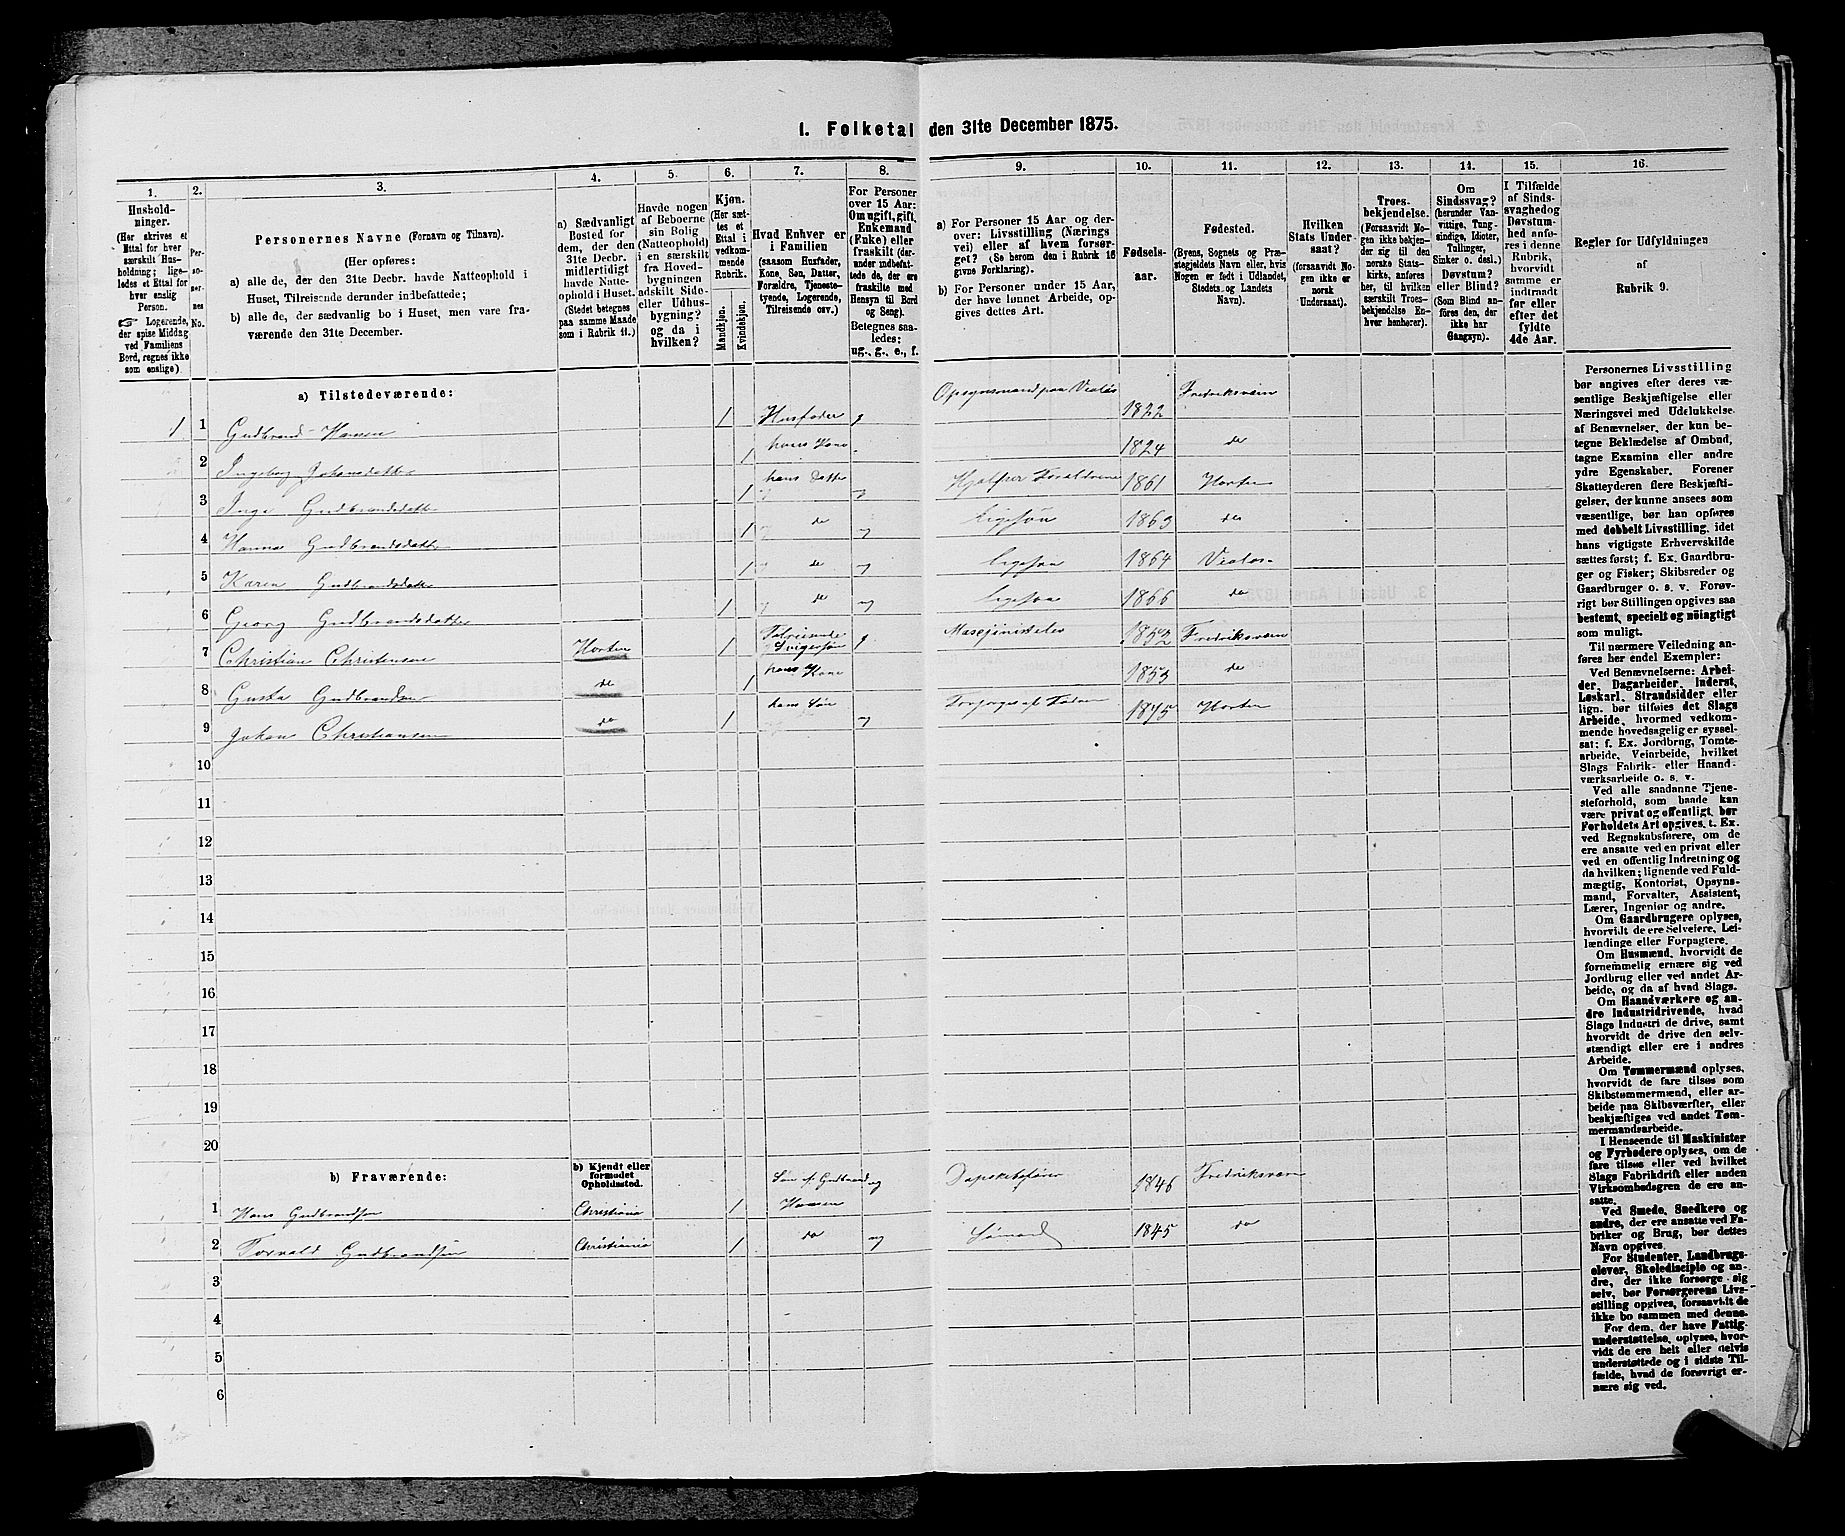 1. Folketal den 31te December 1875.
1.
Hushold-
ninger.
(Her skrives et
Ettal for hver
særskilt Hus-
holdning; lige-
ledes et Ettal for
hver enslig
Person.
☞ Logerende,
der spise Middag
ved Familiens
Bord, regnes ikke
som enslige)
2.
Per-
so-
ner-
nes
No.
3.
Personernes Navne (Fornavn og Tilnavn).
(Her opføres:
a) alle de, der den 31te Decbr. havde Natteophold i
Huset, Tilreisende derunder indbefattede;
b) alle de, der sædvanlig bo i Huset, men vare fra-
værende den 31te December.
4.
a) Sædvanligt
Bosted for
dem, der den
31te Decbr.
midlertidigt
havde Natte-
ophold i Huset.
(Stedet betegnes
paa samme Maade
som i Rubrik 11.)
5.
Havde nogen
af Beboerne
sin Bolig
(Natteophold)
i en særskilt
fra Hoved-
bygningen
adskilt Side-
eller Udhus-
bygning?
og da i
hvilken?
6.
Kjøn.
(Her sæt-
tes et
Ettal i
vedkom-
mende
Rubrik.
Mandkjøn.
Kvindekjøn.
7.
Hvad Enhver er
i Familien
(saasom Husfader,
Kone, Søn, Datter,
Forældre, Tjeneste-
tyende, Logerende,
Tilreisende osv.)
8.
For Personer
over 15 Aar:
Om ugift, gift,
Enkemand
(Enke) eller
fraskilt (der-
under indbefat-
tede de, der ere
fraskilte med
Hensyn til Bord
og Seng).
Betegnes saa-
ledes:
ug., g., e., f.
9.
a) For Personer 15 Aar og der-
over: Livsstilling (Nærings
vei) eller af hvem forsør-
get? (Se herom den i Rubrik 16
givne Forklaring).
b) For Personer under 15 Aar,
der have lønnet Arbeide, op-
gives dettes Art.
10.
Fødsels-
aar.
11.
Fødested.
(Byens, Sognets og Præ-
stegjeldets Navn eller, hvis
Nogen er født i Udlandet,
Stedets og Landets
Navn).
12.
Hvilken
Stats Under-
saat?
(forsaavidt No-
gen ikke er
norsk
Undersaat).
13.
Troes-
bekjendelse.
(Forsaavidt No-
gen ikke bekjen-
der sig til den
norske Stats-
kirke, anføres
her, til hvilken
særskilt Troes-
bekjendelse En-
hver henhører).
14.
Om
Sindssvag?
(herunder Van-
vittige, Tung-
sindige, Idioter,
Tullinger,
Sinker o. desl.)
Døvstum?
eller Blind?
(Som Blind an-
føres den, der
ikke har
Gangsyn).
15.
I Tilfælde
af Sinds-
svaghed og
Døvstum-
hed anfø-
res i denne
Rubrik,
hvorvidt
samme er
indtraadt
før eller
efter det
fyldte
4de Aar.
16.
Regler for Udfyldningen
af
Rubrik 9.
a) Tilstedeværende:
1 1 Gudbrand Hansen 1 Husfader g Opsynsmand paa Vealøs 1822 Fredriksværn
2 Ingeborg Johansdatter 1 hans Kone 1824 do
3 Inga Gudbrandsdatter 1 hans Datter ug Hjælper Foraldrene 1861 Horten
4 Hanna Gudbrandsdatter 1 do ug Ligesøn 1863 do
5 Karen Gudbrandsdatter 1 do ug Ligesøn 1864 Vealøs
6 Georg Gudbrandsdatter 1 do ug Ligesøn 1866 do
7 Christian Christensen Horten 1 Tilreisende Svigersøn g 1852 Fredriksværn
8 Gusta Gudbrandsen do 1 hans Kone 1853 do
9 Johan Christiansen do 1 hans Søn ug Forsørges af Faderen 1875 Horten
10
11
12
13
14
15
16
17
18
19
20
b) Fraværende:
b) Kjendt eller
formodet
Opholdssted.
1 Hans Gudbrandsen Christiania 1 Søn af Gudbrand Hansen ug 1846 Fredriksværn
2 Torvald Gudbrandsen Christiania 1 do ug Sømand 1845 do
3
4
5
6
Personernes Livsstilling
bør angives efter deres væ-
sentlige Beskjæftigelse eller
Næringsvei med Udelukkelse
af Benævnelser, der kun be-
tegne Beklædelse af Ombud,
tagne Examina eller andre
ydre Egenskaber. Forener
Skatteyderen flere Beskjæfti-
gelser, der kunne ansees som
væsentlige, bør han opføres
med dobbelt Livsstilling, idet
hans vigtigste Erhvervskilde
sættes først; f. Ex. Gaardbru-
ger og Fisker; Skibsreder og
Gaardbruger o. s. v. Forøv-
rigt bør Stillingen opgives saa
bestemt, specielt og nøiagtigt
som muligt.
Til nærmere Veiledning an-
føres her endel Exempler:
Ved Benævnelserne: Arbei-
der, Dagarbeider, Inderst,
Løskarl, Strandsidder eller
lign. bør tilføies det Slags
Arbeide, hvormed vedkom-
mende hovedsagelig er syssel-
sat: f. Ex. Jordbrug, Tomte-
arbeide, Veiarbeide, hvilket
Slags Fabrik- eller Haand-
værksarbeide o. s. v.
Ved alle saadanne Tjene-
steforhold, som baade kan
være privat og offentligt, bør
Forholdets Art opgives, t. Ex.
ved Regnskabsførere, om de
ere ansatte ved en privat eller
ved en offentlig Indretning og
da hvilken; lignende ved Fuld-
mægtig, Kontorist, Opsyns-
mand, Forvalter, Assistent,
Lærer, Ingeniør og andre.
Om Gaardbrugere oplyses,
hvorvidt de ere Selveiere, Lei-
lændinge eller Forpagtere.
Om Husmænd, hvorvidt de
fornemmelig ernære sig ved
Jordbrug eller ved andet Ar-
beide, og da af hvad Slags.
Om Haandværkere og an-
dre Industridrivende, hvad
Slags Industri de drive, samt
hvorvidt de drive den selv-
stændigt eller ere i andres
Arbeide.
Om Tømmermænd oplyses,
hvorvidt de fare tilsøs som
Skibstømmermænd, eller ar-
beide paa Skibsværfter, eller
beskjæftiges ved andet Tøm-
mermandsarbeide.
I Henseende til Maskinister
og Fyrbødere oplyses, om de
fare tilsøs eller ved hvilket
Slags Fabrikdrift eller anden
Virksomhedsgren de ere an-
satte.
Ved Smede, Snedkere og
andre, der ere ansatte ved Fa-
briker og Brug, bør dettes
Navn opgives.
For Studenter, Landbrugs-
elever, Skoledisciple og an-
dre, der ikke forsørge sig
selv, bør Forsørgerens Livs-
stilling opgives, forsaavidt de
ikke bo sammen med denne.
For dem, der have Fattig-
understøttelse, oplyses, hvor-
vidt de ere helt eller delvis
understøttede og i sidste Til-
fælde, hvad de forøvrigt er-
nære sig ved.